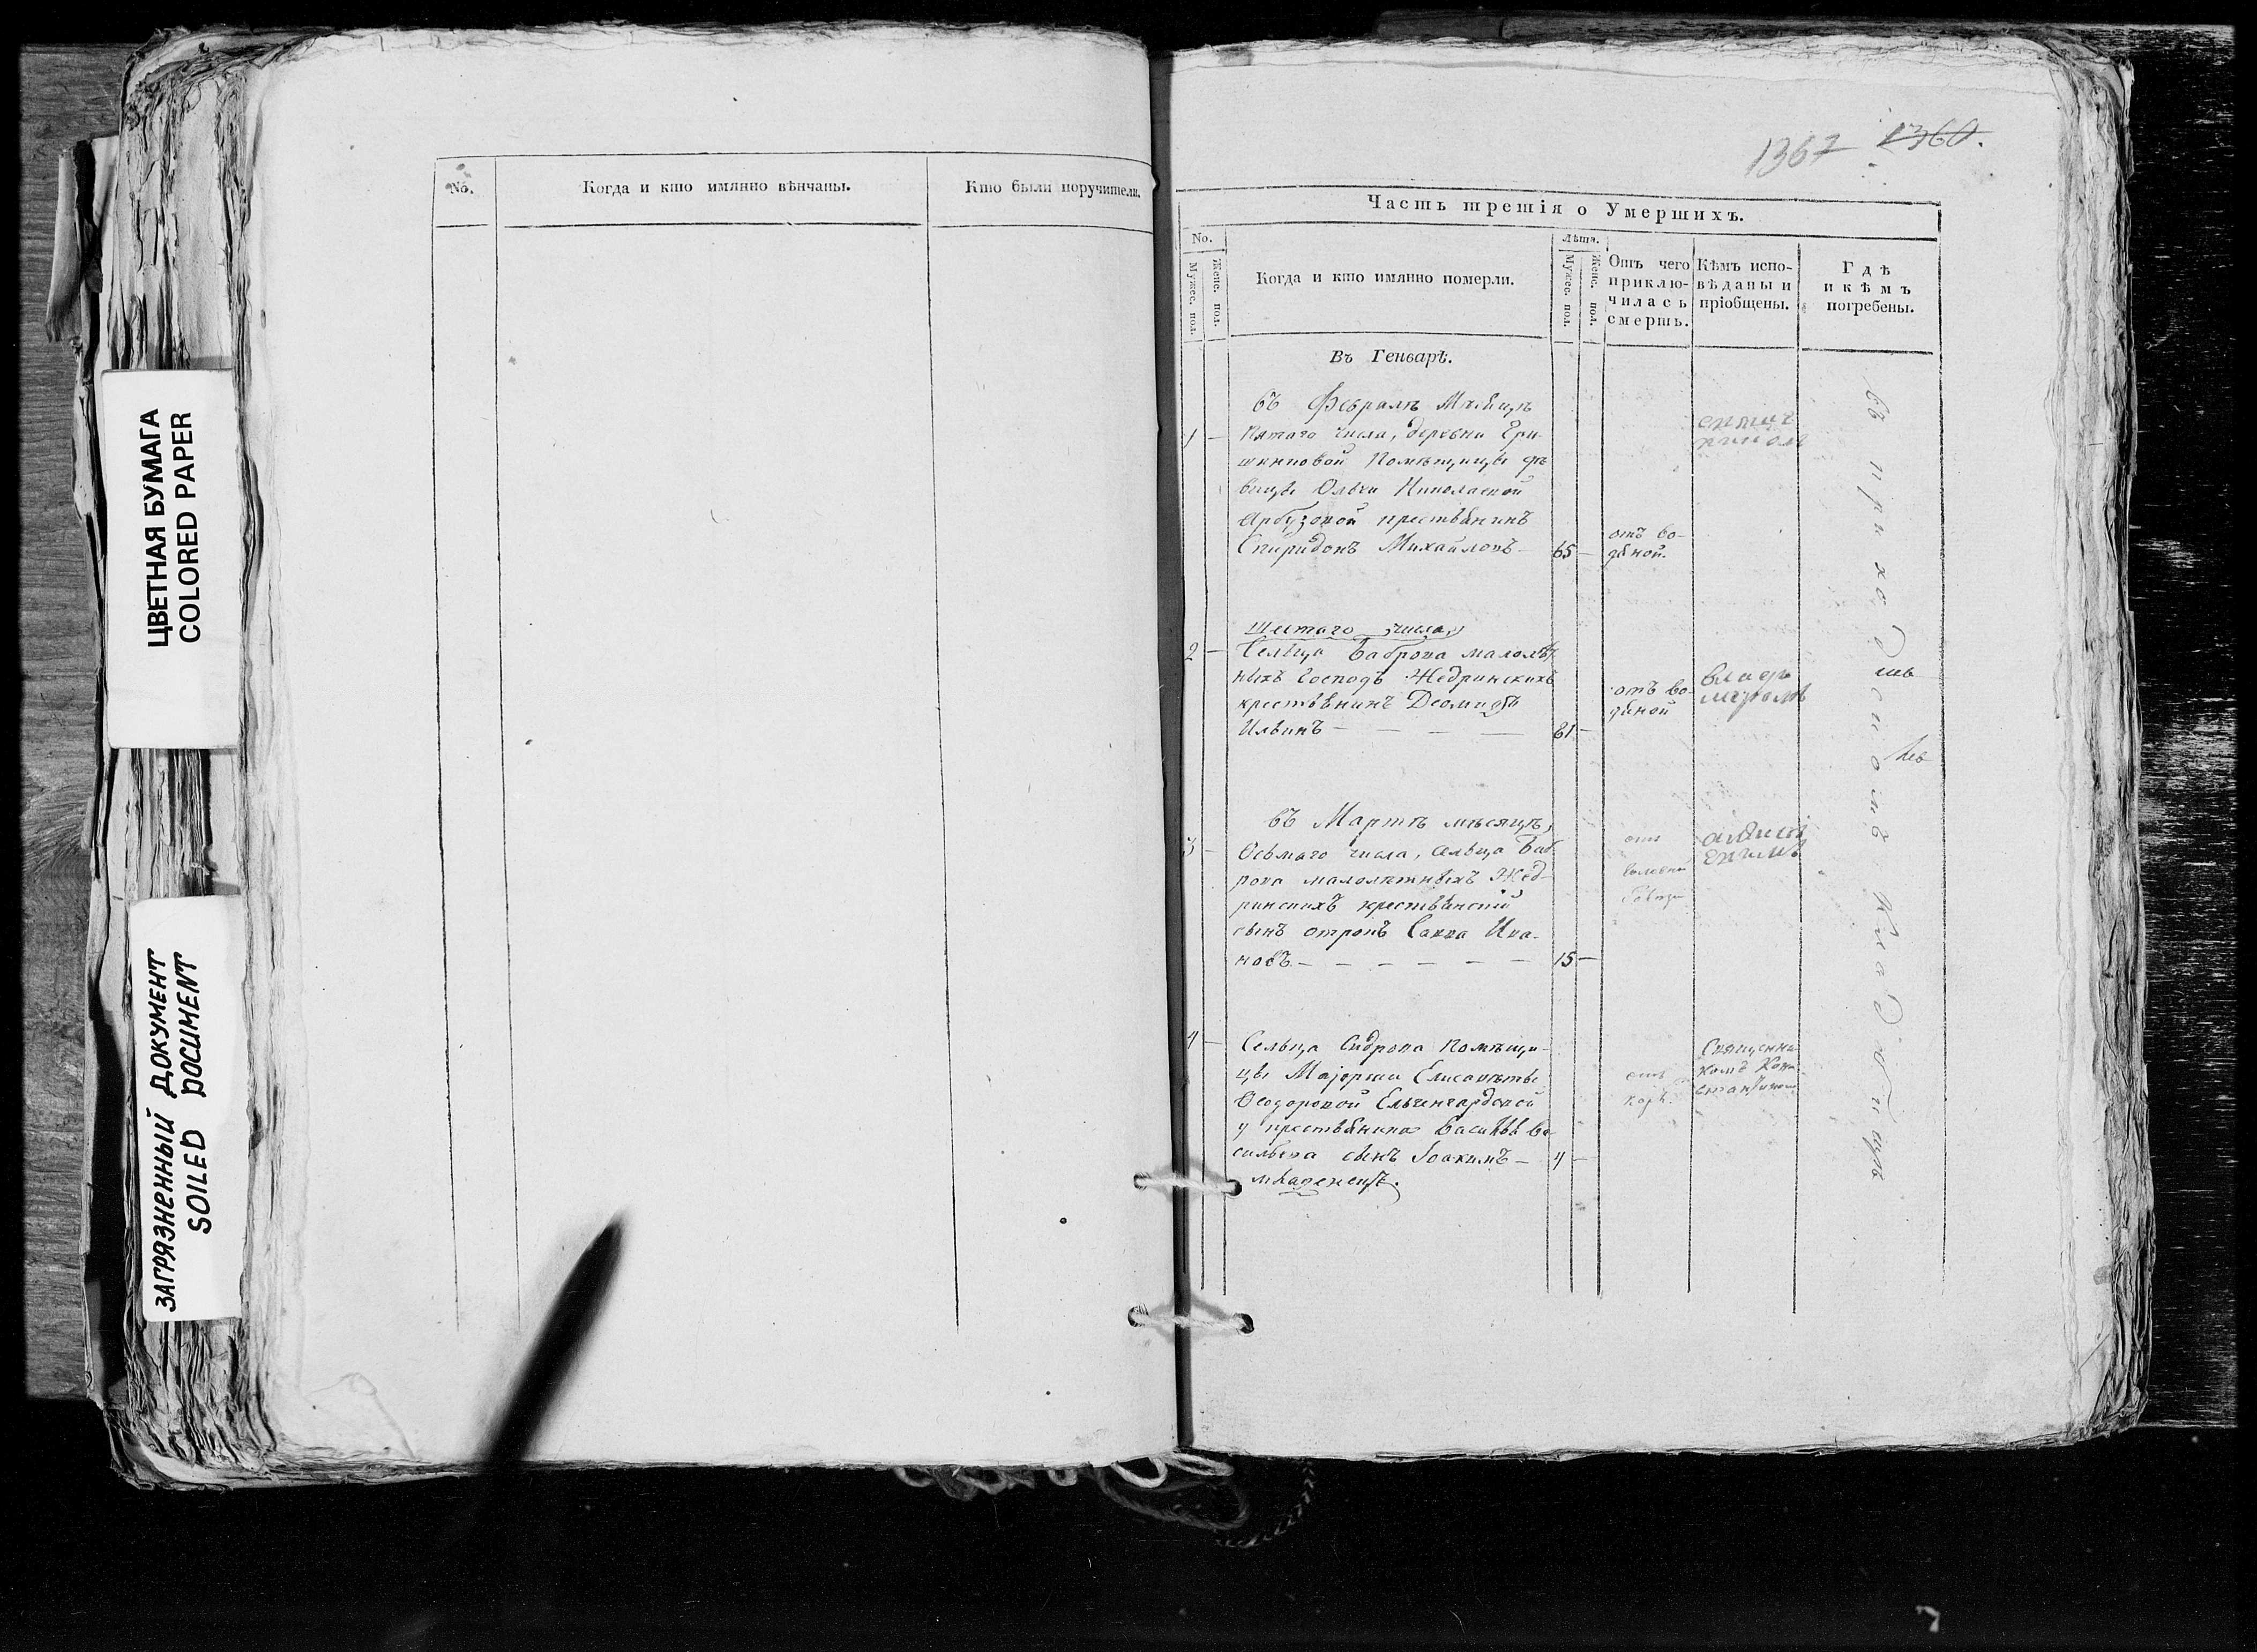 ЦВЕТНАЯ БУМАГА
COLORED PAPER
ЗАГРЯЗНЕННЫЙ ДОКУМЕНТ
SOILED DOCUMENT
No.
Когда и кто имянно вѣнчаны.
Кто были поручители.
1367 1360.
Часть третія о Умершихъ.
No.
Мужес. пол.
Женс. пол.
Когда и кто имянно померли.
Лѣта.
Мужес. пол.
Женс. пол.
Отъ чего
приклю-
чилась
смерть.
Кѣмъ испо-
вѣданы и
пріобщены.
Гдѣ
и кѣмъ
погребены.
Въ Генварѣ.
въ Февралѣ Мѣсяцѣ
1 — Пятаго числа, деревни Гри-
шкиновой Помѣщицы дѣ
вицы Ольги Николаевой
Арбузовой крестьянинъ
Спиридонъ Михайловъ — 65 —
отъ во-
дяной.
шестаго числа,
2 — Сельца Баброва малолѣт
ныхъ Господъ Жедринскихъ
крестьянинъ Деомидъ
Ильинъ — — — — 61 —
отъ во-
дяной
влади
міромъ
въ Мартѣ мѣсяцѣ,
3 — Осьмаго числа, сельца Баб
рова малолѣтныхъ Жед-
ринскихъ крестьянскій
сынъ отрокъ Савва Ива-
новъ — — — — — — 15 —
отъ
алексі
енимъ
4 — Сельца Бидрова Помѣщи-
цы Маіорши Елисаветы
Ѳеодоровой Ельчингардовой
у крестьянина Василья Ва
сильева сынъ Іоакимъ — 4 —
младенецъ.
отъ
кори.
Священни
комъ Кон
стантином
въ приходскомъ кладбищѣ